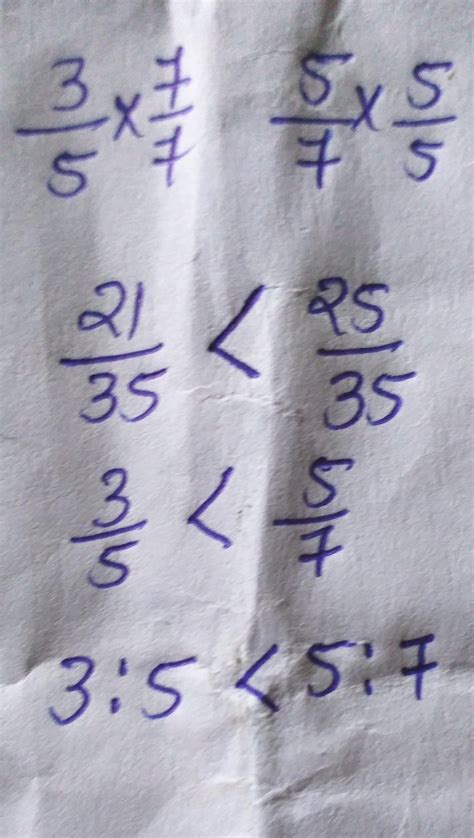 3/5 × 7/7    5/7 × 5/5
21/35 < 25/35
3/5 < 5/7
3:5 < 5:7